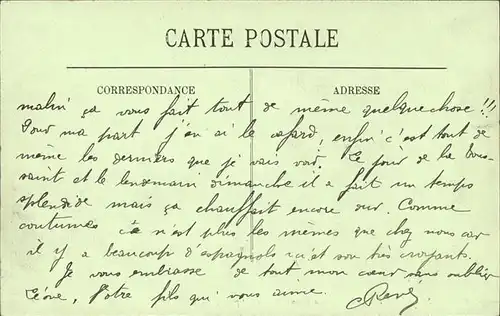 CARTE POSTALE
CORRESPONDANCE
ADRESSE
malin ça vous fait tout de même quelquechose !!!
Pour ma part j'en ai le cafard, enfin c'est tout de
même les derniers que je vais voir. Ce jour de la Tous-
saint et le lendemain dimanche il a fait un temps
splendide mais ça chauffait encore dur. Comme
coutumes ce n'est plus les mêmes que chez nous car
il y a beaucoup d'espagnols ici et son très croyants.
Je vous embrasse de tout mon cœur sans oublier
Léone, Votre fils qui vous aime. René